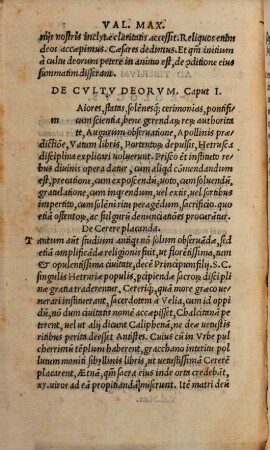 VAL. MAX.
nijs nostris inclytæ claritatis accessit. Reliquos enim
deos accæpimus. Cæsares dedimus. Et qm̄ initium
à cultu deorum petere in animo est, de cōditione eius
summatim disseram.
DE CVLTV DEORVM. Caput I.
Aiores, statas, solēnesq; cerimonias, pontifi
cum scientia, bene gerendas; res; authorita
te, Augurum obseruatione, Apollinis præ
dictiōe, Vatum libris, Portentor; depulsis, Hetrusca
disciplina explicari uoluerunt. Prisco ēt instituto re
bus diuinis opera datur, cum aliqd cōmendandum
est, precatione, cum exposcendū, uoto, cum soluendū,
gratulatione, cum inqrendum, uel extis, uel sortibus
impertito, cum solēni ritu peragēdum, sacrificio. quo
etiā ostentor; ac fulgurū denunciatiōes procurātur.
De Cerere placanda.
Tantum aūt studium antiqs nō solum obseruādæ, sed
etiā amplificādæ religionis fuit, ut florentissima, tum
& opulentissima ciuitate, decē Principum filij, S. C.
singulis Hetruriæ populis, pcipiendæ sacror; discipli
næ gratia traderentur, Cereriq;, quam more græco ue
nerari instituerant, sacerdotem à Velia, cum id oppi
dū, nō dum ciuitatis nomē accæpisset, Chalcitanā pe
terent, uel ut alij dicunt Caliphœnā, ne deæ uetustis
ritibus perita deesset Antistes. Cuius cū in Vrbe pul
cherrimū tēplum haberent, gracchano interitu pol
lutum moniti sibyllinis libris, ut uetustissimā Cererē
placarent, Ætnā, qm̄ sacra eius inde orta credebāt,
xv. uiros ad eā propitiandā miserunt. Itē matri deū